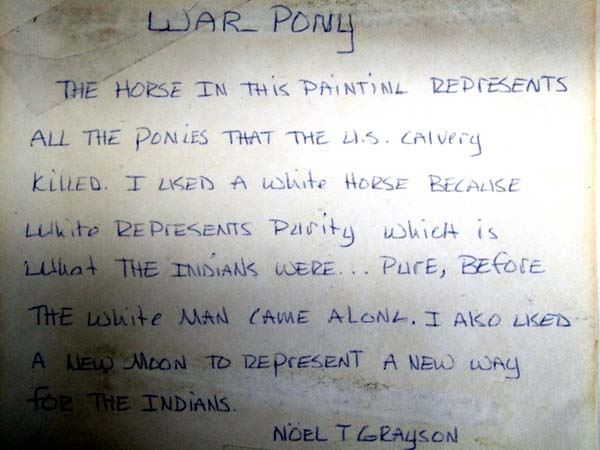 WAR PONY
THE HORSE IN THIS PAINTING REPRESENTS
ALL THE PONIES THAT THE U.S. CALVERY
KILLED. I USED A WHITE HORSE BECAUSE
WHITE REPRESENTS PURITY WHICH IS
WHAT THE INDIANS WERE... PURE, BEFORE
THE WHITE MAN CAME ALONG. I ALSO USED
A NEW MOON TO REPRESENT A NEW WAY
FOR THE INDIANS.
NOEL T GRAYSON